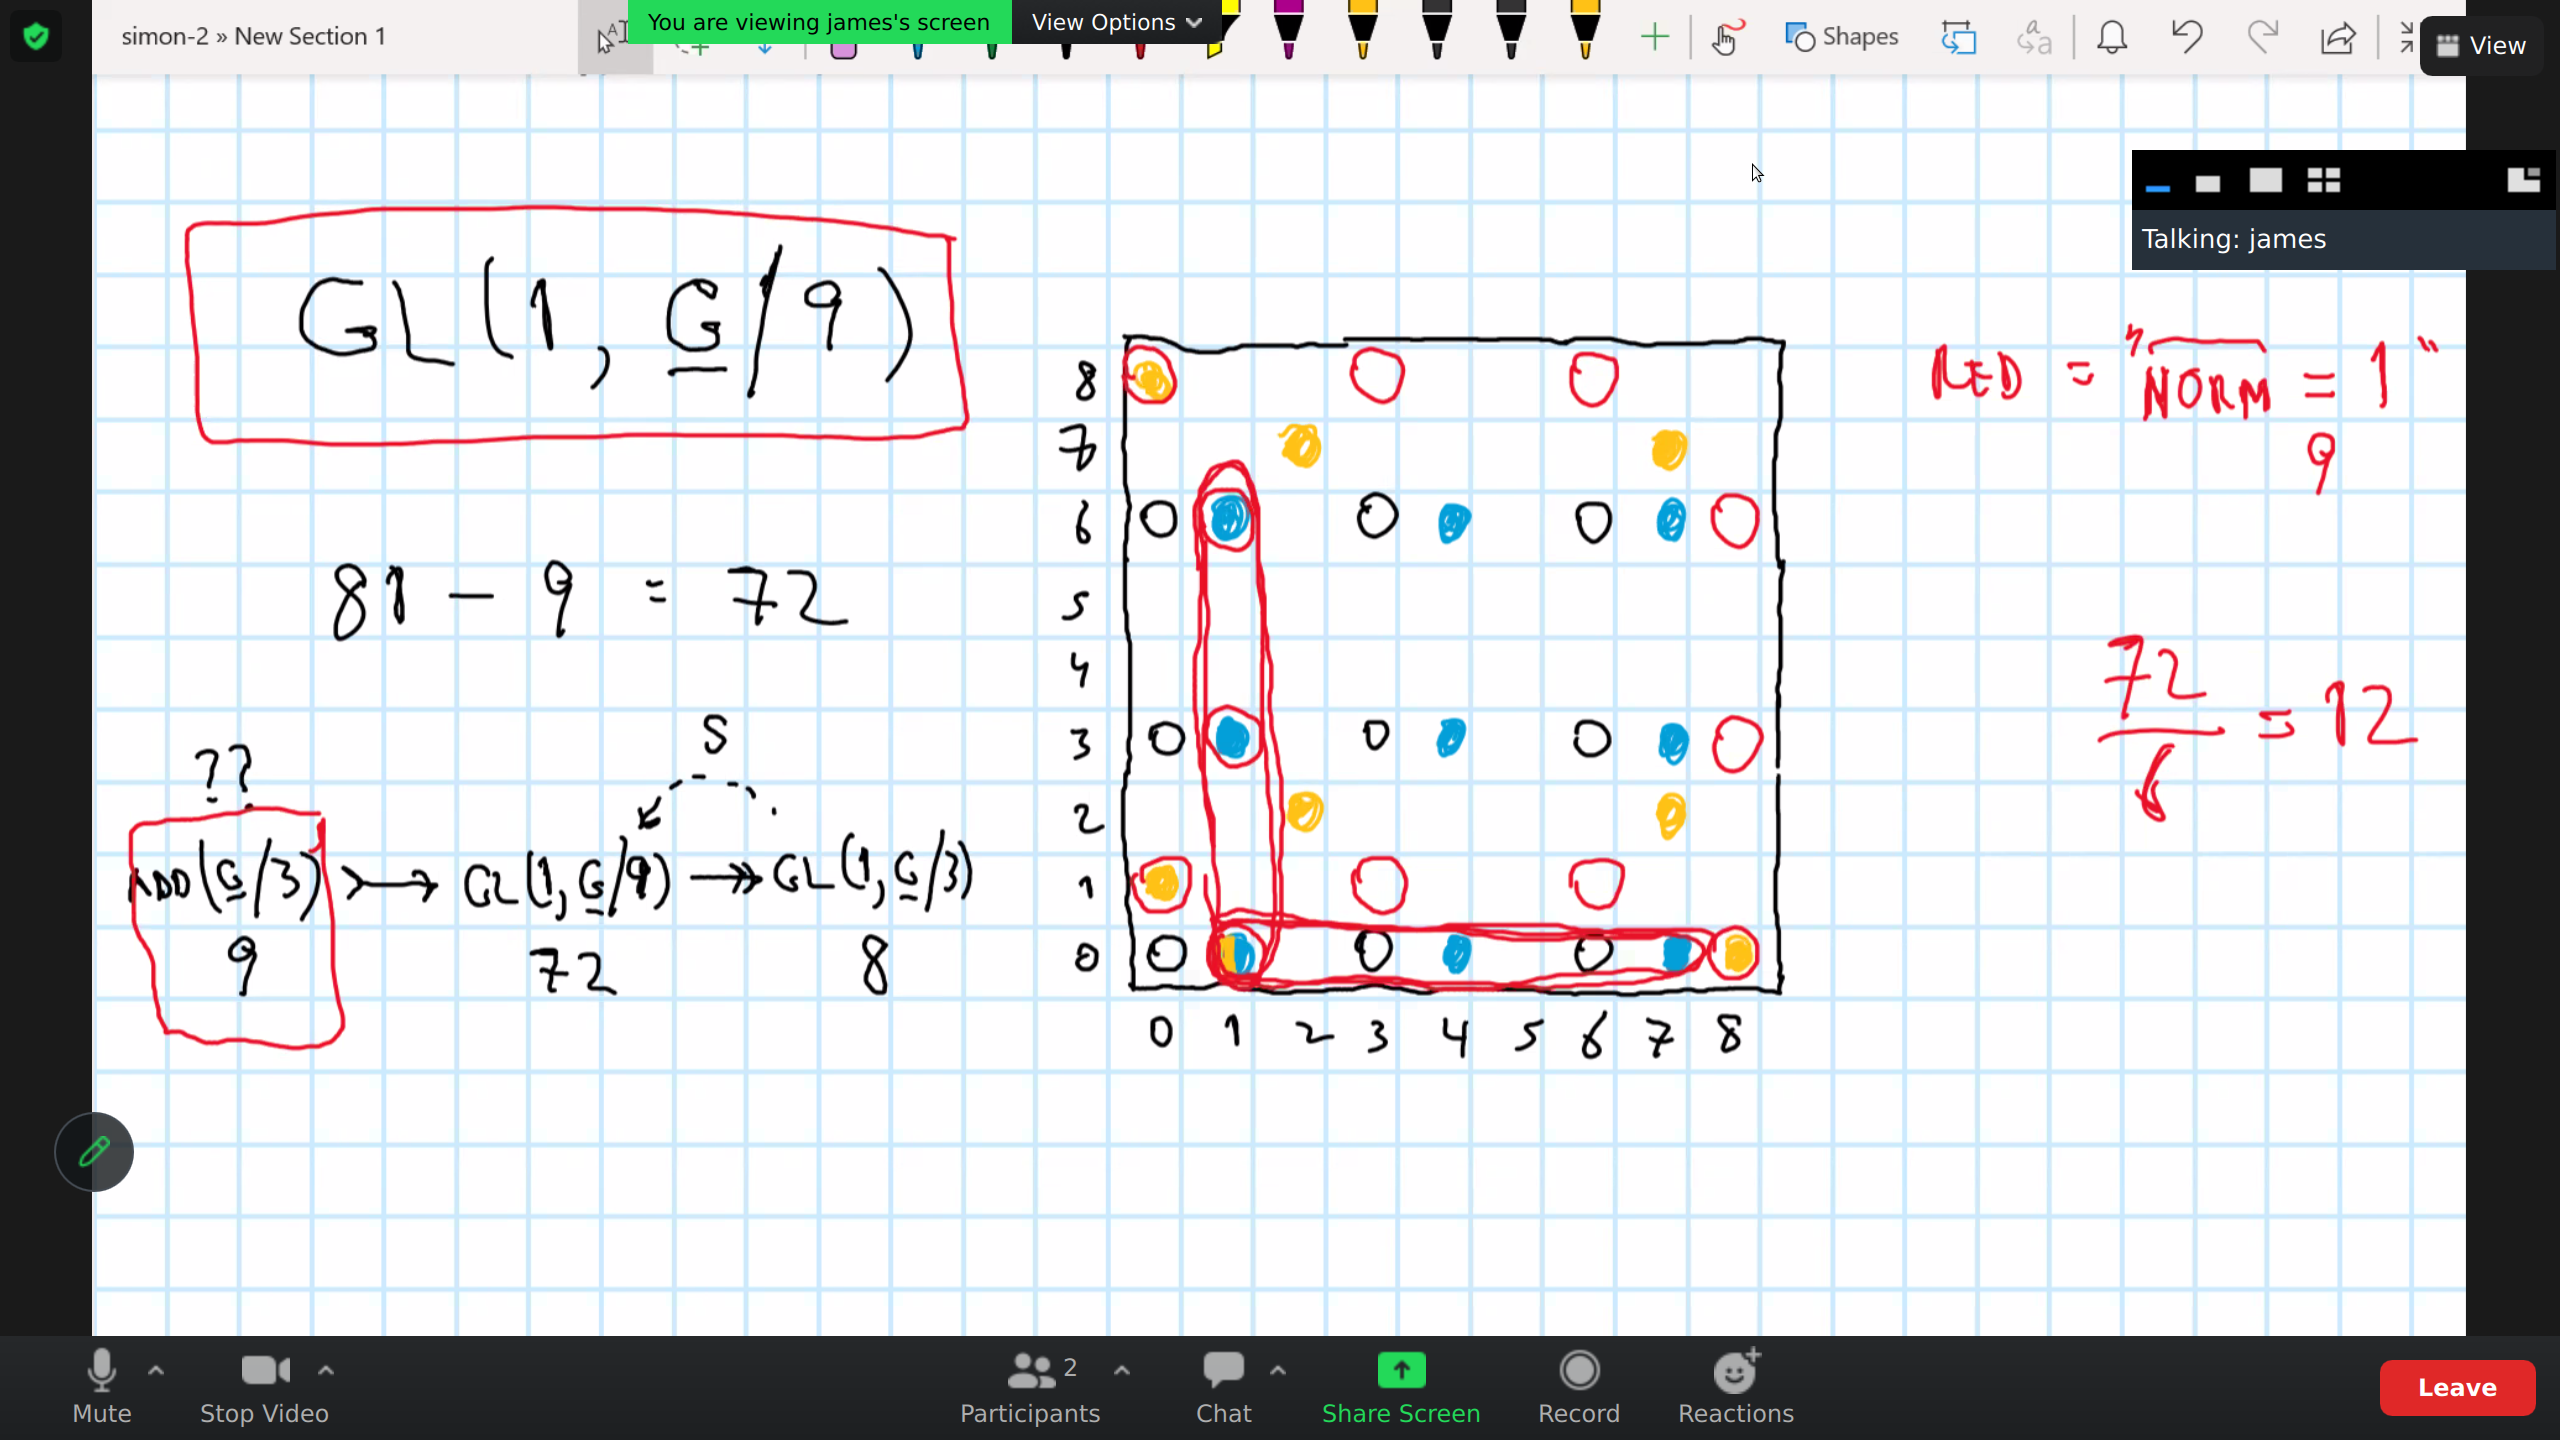 simon-2 » New Section 1
You are viewing james's screen
View Options
Shapes
View
Talking: james
GL(1, G/9)
81 - 9 = 72
??
S
ADD(G/3) >→ GL(1, G/9) ↠ GL(1, G/3)
9 72 8
8
7
6
5
4
3
2
1
0
0 1 2 3 4 5 6 7 8
RED = "NORM = 1"
9
72/6 = 12
Mute
Stop Video
Participants 2
Chat
Share Screen
Record
Reactions
Leave